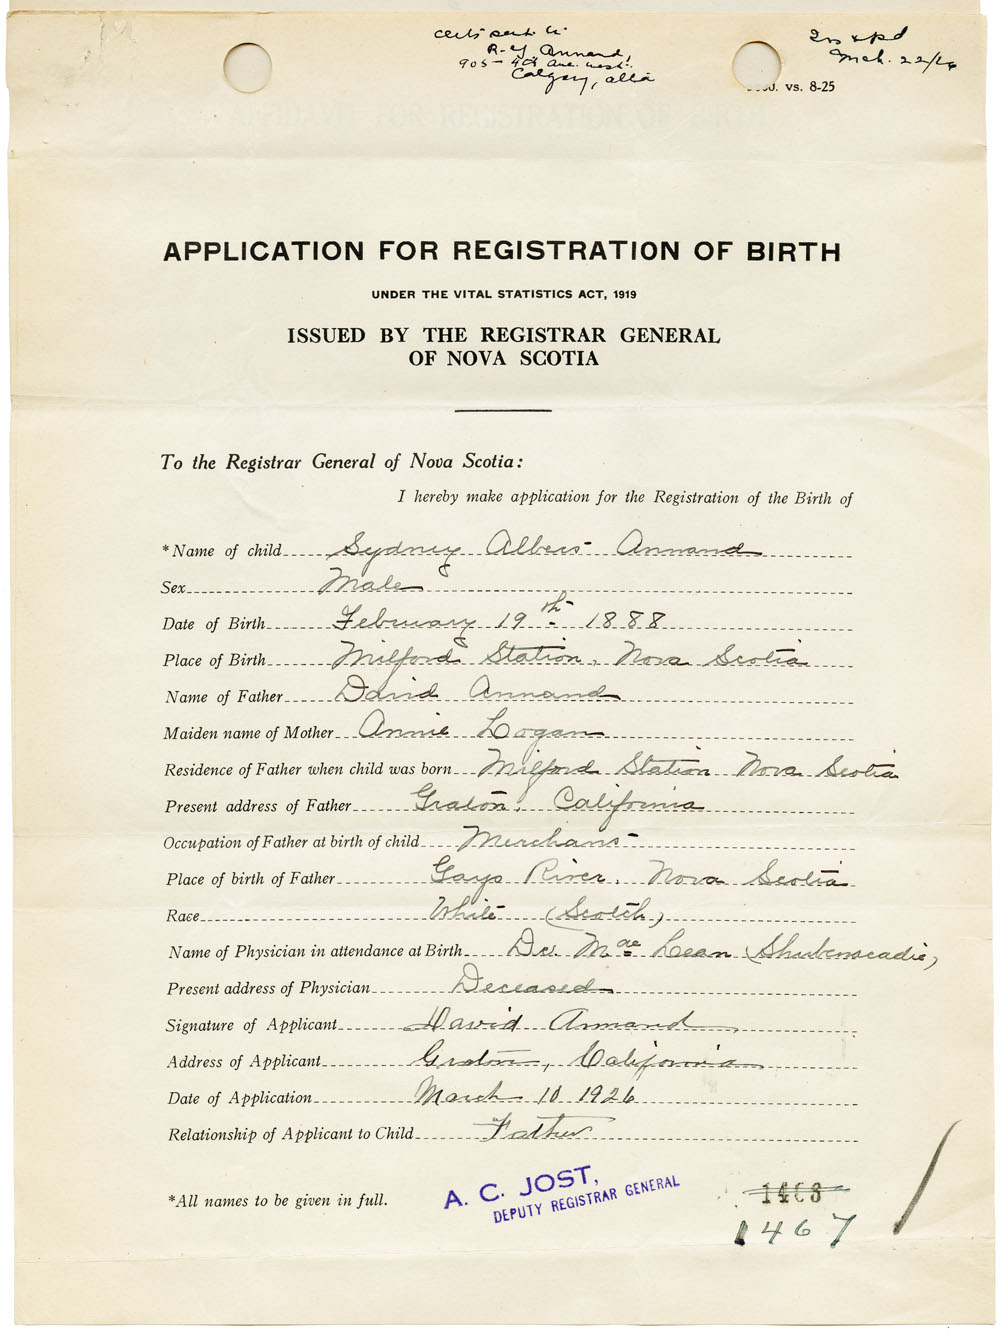 Certs sent to
R. Y. Annand,
905 - 4th Ave. West.
Calgary, Alta
Mch. 22/26
vs. 8-25
APPLICATION FOR REGISTRATION OF BIRTH
UNDER THE VITAL STATISTICS ACT, 1919
ISSUED BY THE REGISTRAR GENERAL
OF NOVA SCOTIA
To the Registrar General of Nova Scotia:
I hereby make application for the Registration of the Birth of
*Name of child Sydney Albert Annand
Sex Male
Date of Birth February 19th 1888
Place of Birth Milford Station, Nova Scotia
Name of Father David Annand
Maiden name of Mother Annie Logan
Residence of Father when child was born Milford Station Nova Scotia
Present address of Father Graton, California
Occupation of Father at birth of child Merchant
Place of birth of Father Gays River, Nova Scotia
Race White (Scotch)
Name of Physician in attendance at Birth Dr. Mac Lean (Shubenacadie)
Present address of Physician Deceased
Signature of Applicant David Annand
Address of Applicant Graton, California
Date of Application March 10 1926
Relationship of Applicant to Child Father
*All names to be given in full.
A. C. JOST,
DEPUTY REGISTRAR GENERAL
1467